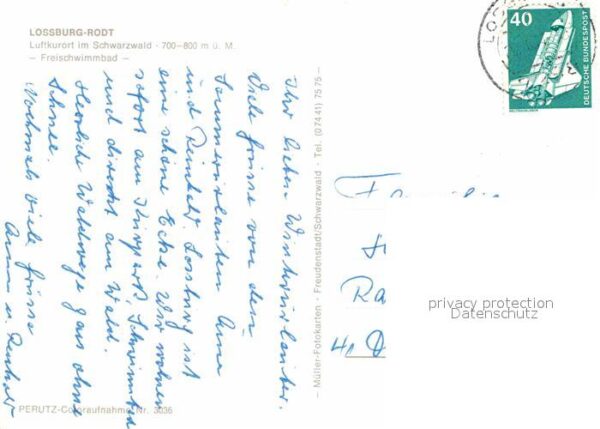 LOSSBURG-RODT
Luftkurort im Schwarzwald · 700-800 m ü. M.
– Freischwimmbad –
Ihr lieben Winterurlauber.
Viele Grüsse von den
Sommerurlaubern Anna
und Reinhold. Lossburg ist
eine schöne Ecke. Wir wohnen
sofort am Kurpark, Schwimmbad
und direkt am Wald.
Herrliche Waldwege ganz ohne
Schnee.
Nochmals viele Grüsse
Anna u. Reinhold
PERUTZ-Coloraufnahme Nr. 3036
– Müller-Fotokarten - Freudenstadt/Schwarzwald - Tel. (07441) 7575 –
40
DEUTSCHE BUNDESPOST
Ra
privacy protection
Datenschutz